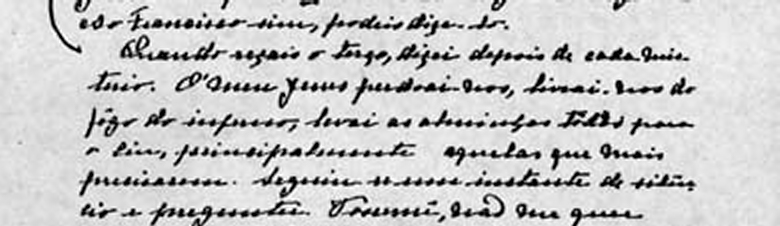 ao Francisco sim, podeis dize-lo.
Quando rezais o terço, dizei depois de cada mis-
terio. O' meu Jesus perdoai-nos, livrai-nos do
fôgo do inferno, levai as alminhas todas para
o Ceu, principalmente aquelas que mais
precisarem. Seguiu-se um instante de silên-
cio e preguntei. Vossemecê, não me quer